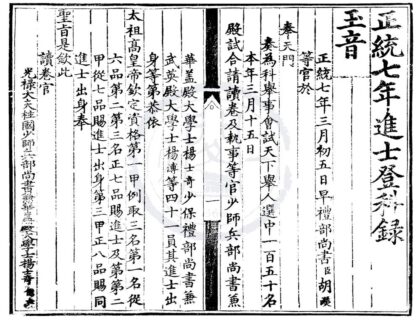 正統七年進士登科錄
玉音
正統七年三月初五日早禮部尚書臣胡濙
等官於
奉天門
奏為科舉事會試天下舉人選中一百五十名
本年三月十五日
殿試合請讀卷及執事等官少師兵部尚書兼
華蓋殿大學士楊士奇少保禮部尚書兼
武英殿大學士楊溥等四十一員其進士出
身等第恭依
太祖高皇帝欽定資格第一甲例取三名第一名從
六品第二第三名正七品賜進士及第第二
甲從七品賜進士出身第三甲正八品賜同
進士出身奉
聖旨是欽此
讀卷官
光祿大夫柱國少師兵部尚書兼華蓋殿大學士楊士奇